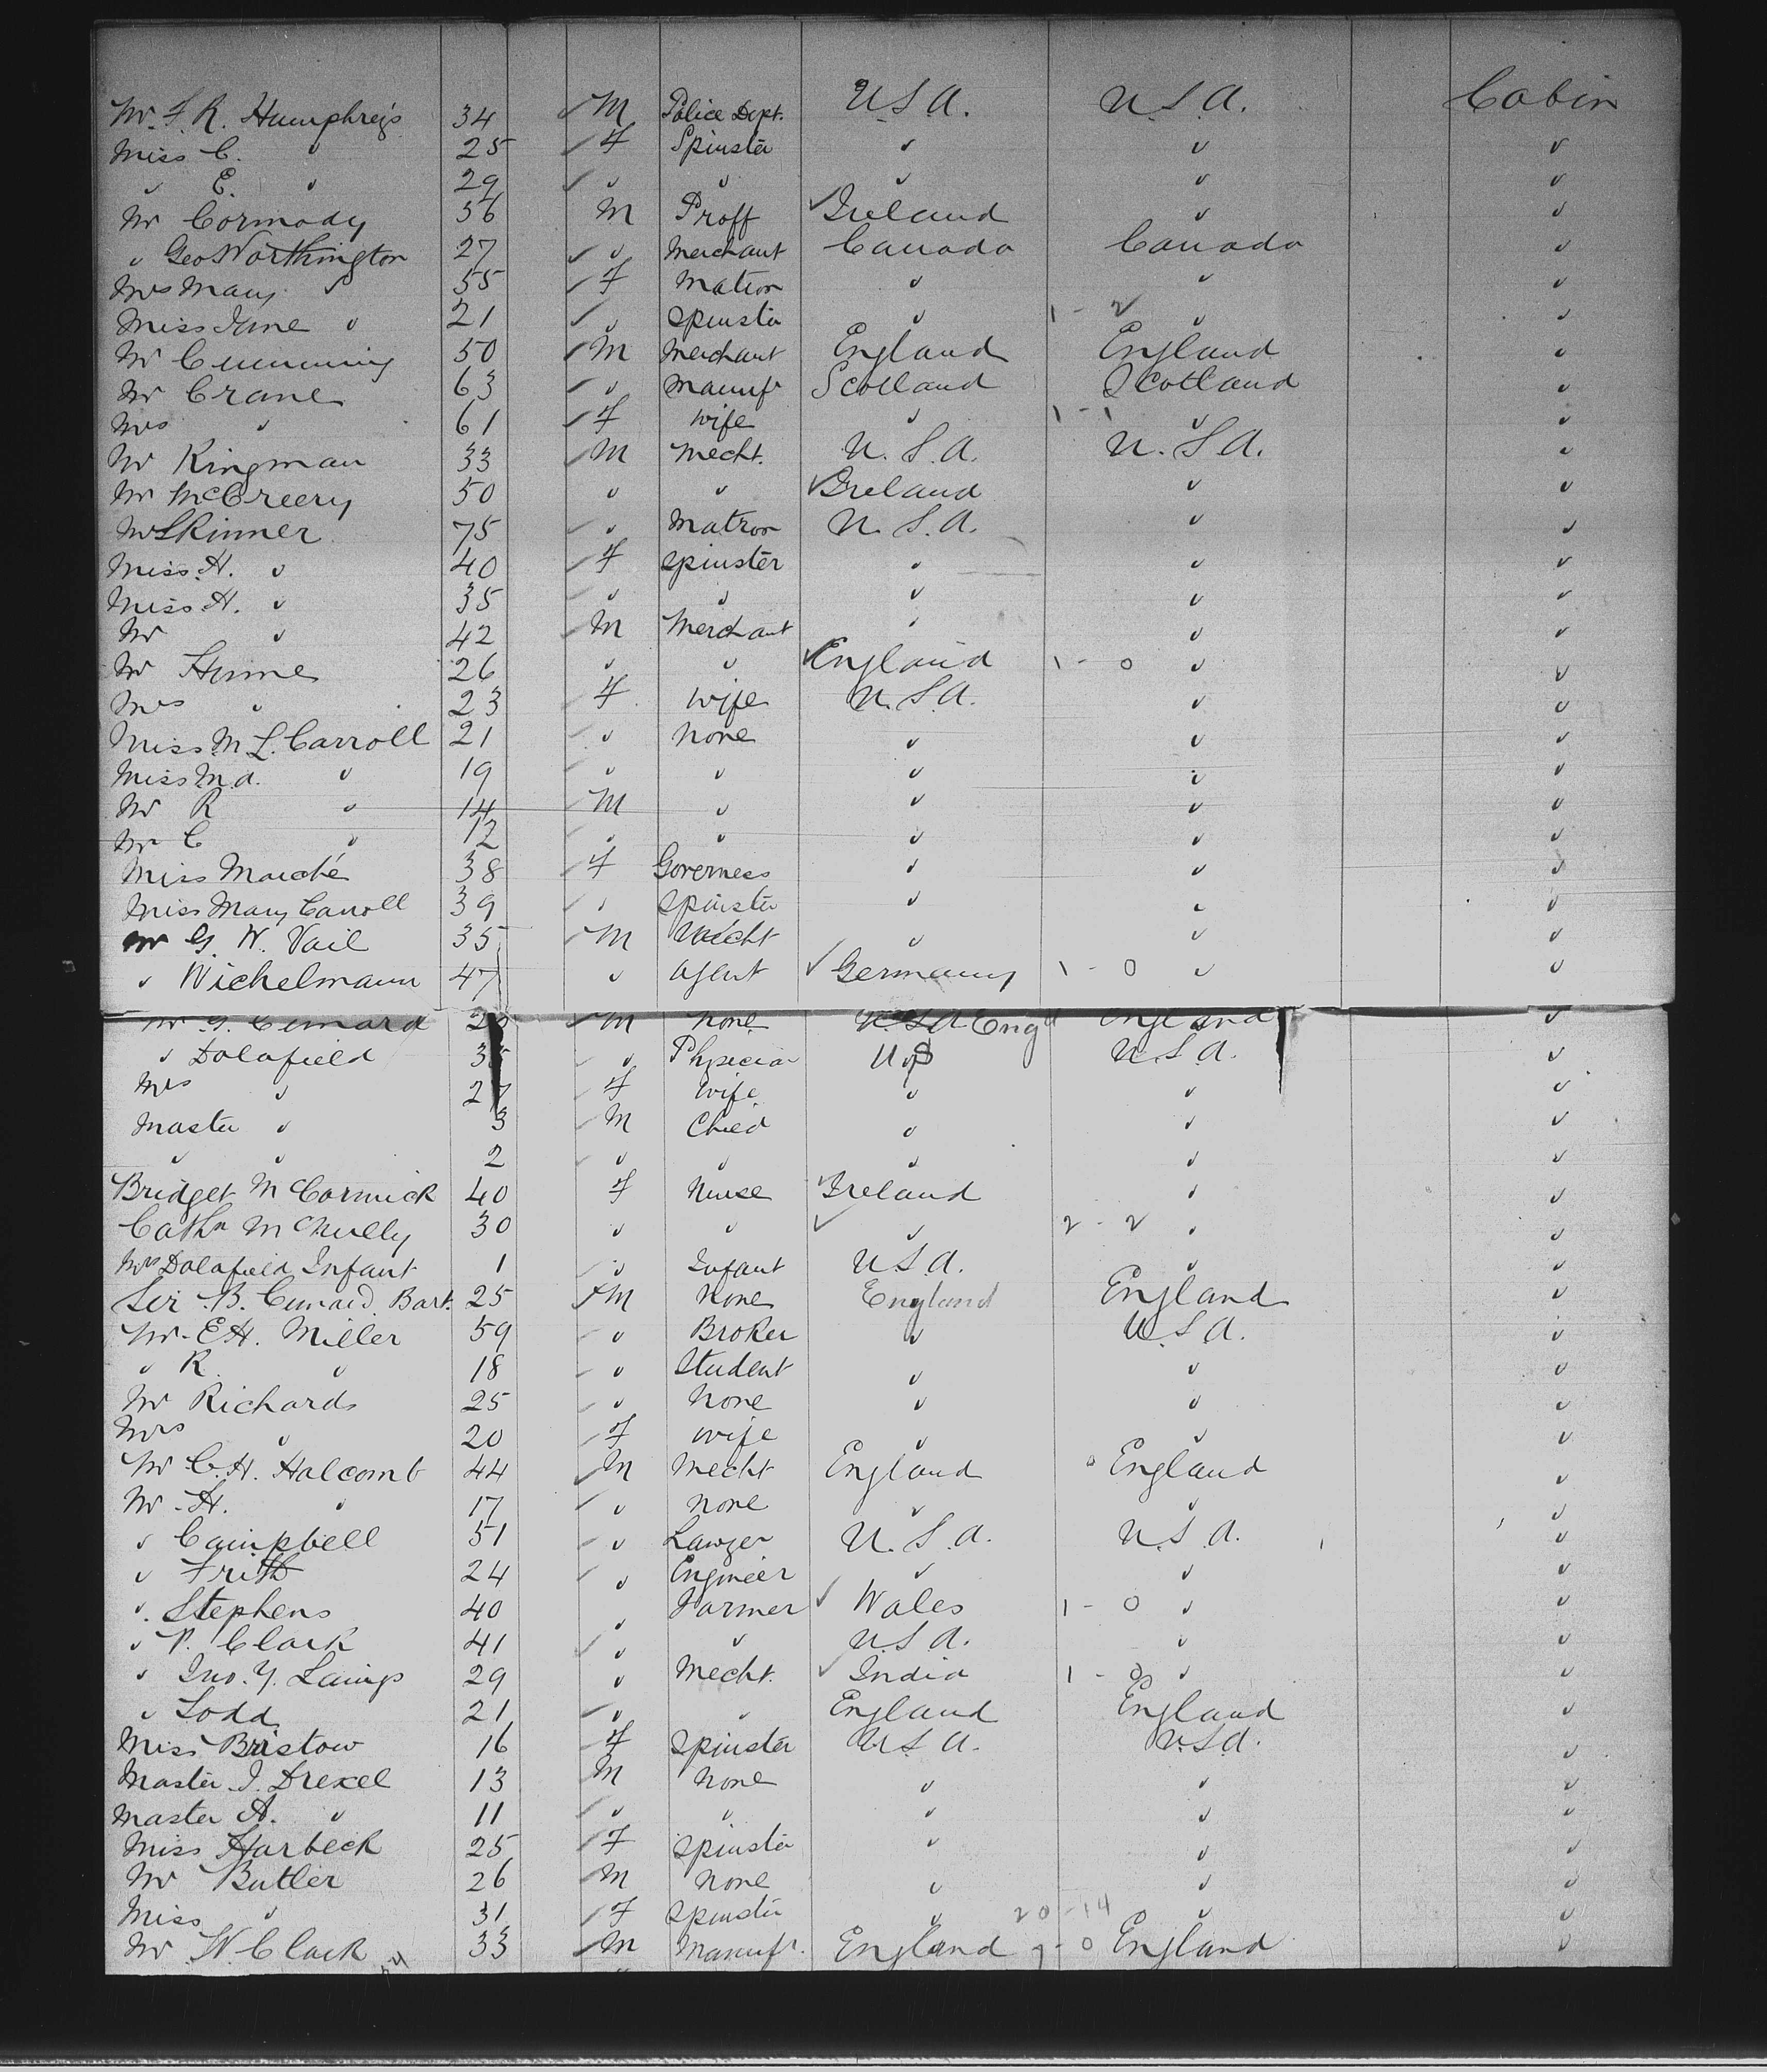 Mr. F. R. Humphreys 34 ✓ M Police Dept. U.S.A. U.S.A. Cabin
Miss C. " 25 ✓ F Spinster " " "
" E. " 29 ✓ " " " " "
Mr Cormody 56 M Proff ✓ Ireland " "
" Geo Worthington 27 ✓ " Merchant Canada Canada "
Mrs Mary " 55 ✓ F Matron " " "
Miss Jane " 21 ✓ " Spinster " 1 - 2 " "
Mr Cumming 50 ✓ M Merchant England England "
Mr Crane 63 ✓ " Manufr Scotland Scotland "
Mrs " 61 ✓ F Wife " 1 - 1 " "
Mr Kingman 33 ✓ M Mecht. U.S.A. U.S.A. "
Mr McCreery 50 " " ✓ Ireland " "
Mr Skinner 75 ✓ " Matron U.S.A. " "
Miss H. " 40 ✓ F Spinster " " "
Miss H. " 35 ✓ " " " " "
Mr " 42 ✓ M Merchant " " "
Mr Hume 26 " " ✓ England 1 - 0 " "
Mrs " 23 ✓ F Wife U.S.A. " "
Miss M L. Carroll 21 ✓ " None " " "
Miss M.A. " 19 ✓ " " " " "
Mr R " 14 ✓ M " " " "
Mr C " 12 ✓ " " " " "
Miss 38 ✓ F Governess " " "
Miss Mary Carroll 39 ✓ " Spinster " " "
Mr G. W. Vail 35 ✓ M Mecht " " "
" Wichelmann 47 " Agent ✓ Germany 1 - 0 " "
Mr G. Cunard ✓ M None Engd England "
" Dolafield 35 ✓ " Physician U S U.S.A. "
Mrs " 27 ✓ F Wife " " "
Master " 3 ✓ M Chied " " "
" " 2 ✓ " " " " "
Bridget McCormick 40 ✓ F Nurse ✓ Ireland " "
Cathn McNully 30 " " ✓ " 2 - 2 " "
Mrs Dolafield Infant 1 ✓ " Infant U.S.A. " "
Sir B. Cunard. Bart. 25 ✓ M None England England "
Mr. E H. Miller 59 ✓ " Broker " U.S.A. "
" R. " 18 ✓ " Student " " "
Mr Richards 25 ✓ " None " " "
Mrs " 20 ✓ F Wife " " "
Mr C. H. Halcomb 44 ✓ M Mecht England England "
Mr H. " 17 ✓ " None " " "
" Campbell 51 ✓ " Lawyer U.S.A. U.S.A. "
" Frith 24 ✓ " Engineer " " "
" Stephens 40 " Farmer ✓ Wales 1 - 0 " "
" P. Clark 41 ✓ " " U.S.A. " "
" Jno. Y. Laings 29 " Mecht. ✓ India 1 - 0 " "
" Todd 21 ✓ " " England England "
Miss Bristow 16 ✓ F Spinster U.S.A. U.S.A. "
Master J. Drexel 13 ✓ M None " " "
Master A. " 11 ✓ " " " " "
Miss Harbeck 25 ✓ F Spinster " " "
Mr Butler 26 ✓ M None " " "
Miss " 31 ✓ F Spinster " 20 - 14 " "
Mr W. Clark 33 ✓ M Manufr. England 7 - 0 England "